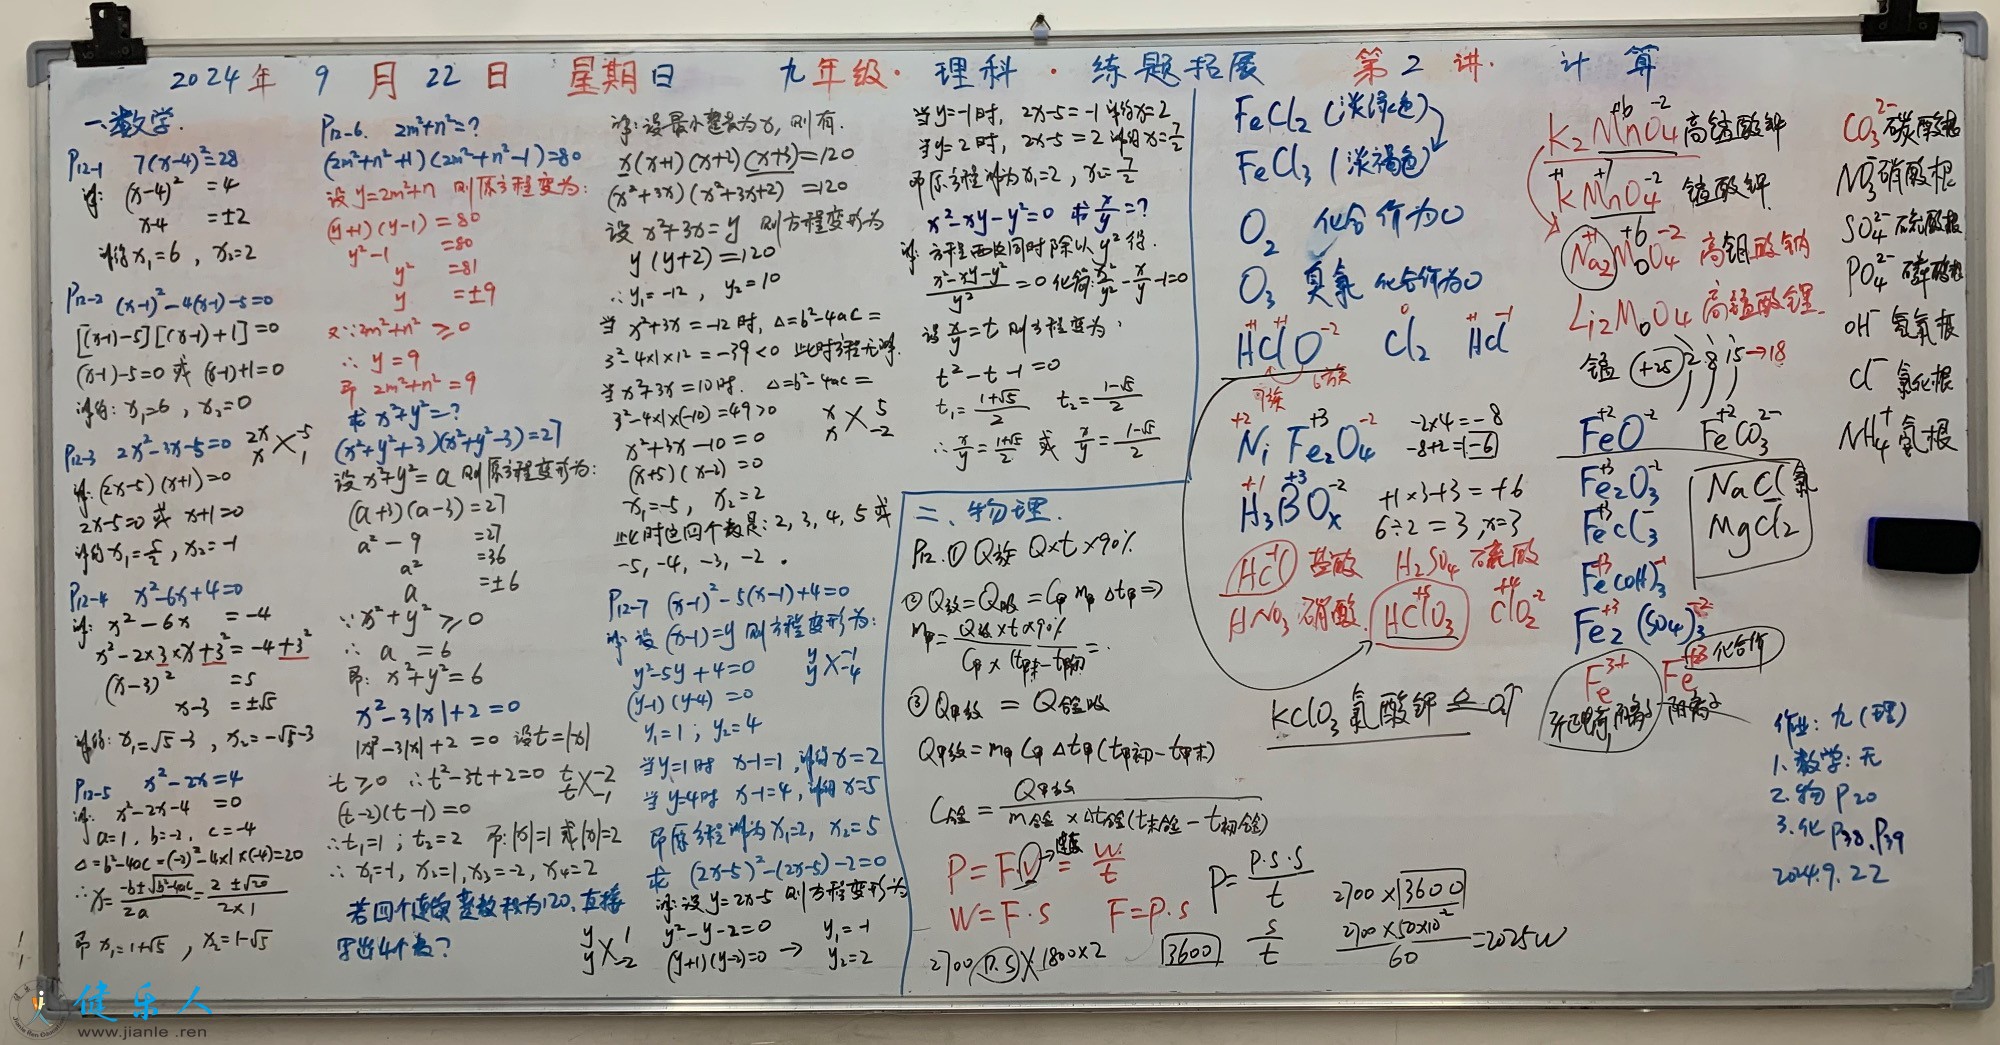 2024年 9 月 22 日 星期日 九年级· 理科 · 练题拓展 第 2 讲· 计 算
一、数学.
P12-1 7(x-4)²=28
解: (x-4)² =4
x-4 =±2
解得 x₁=6 , x₂=2
P12-2 (x-1)²-4(x-1)-5=0
[(x-1)-5][(x-1)+1]=0
(x-1)-5=0 或 (x-1)+1=0
解得: x₁=6 , x₂=0
P12-3 2x²-3x-5=0
2x -5
x 1
解: (2x-5)(x+1)=0
2x-5=0 或 x+1=0
解的 x₁=5/2 , x₂=-1
P12-4 x²-6x+4=0
解: x²-6x =-4
x²-2×3×x+3²=-4+3²
(x-3)² =5
x-3 =±√5
解得: x₁=√5-3 , x₂=-√5-3
P12-5 x²-2x=4
解: x²-2x-4 =0
a=1, b=-2, c=-4
Δ=b²-4ac=(-2)²-4×1×(-4)=20
∴x=(-b±√(b²-4ac))/2a=(2±√20)/(2×1)
即 x₁=1+√5 , x₂=1-√5
P12-6. 2m²+n²=?
(2m²+n²+1)(2m²+n²-1)=80
设 y=2m²+n 则原方程变为:
(y+1)(y-1)=80
y²-1 =80
y² =81
y =±9
又∵2m²+n² ≥0
∴ y=9
即 2m²+n²=9
求 x²+y²=?
(x²+y²+3)(x²+y²-3)=27
设 x²+y²=a 则原方程变形为:
(a+3)(a-3)=27
a²-9 =27
a² =36
a =±6
∵x²+y²≥0
∴ a =6
即: x²+y²=6
x²-3|x|+2=0
|x|²-3|x|+2=0 设t=|x|
t≥0 ∴t²-3t+2=0
t -2
t -1
(t-2)(t-1)=0
∴t₁=1; t₂=2 即:|x|=1 或|x|=2
∴x₁=-1, x₂=1, x₃=-2, x₄=2
若四个连续整数积为120, 直接
写出4个数?
解:设最小整数为x, 则有.
x(x+1)(x+2)(x+3)=120
(x²+3x)(x²+3x+2) =120
设 x²+3x=y 则方程变形为
y(y+2)=120
∴y₁=-12 , y₂=10
当 x²+3x=-12时, Δ=b²-4ac=
3²-4×1×12=-39<0 此时方程无解.
当x²+3x=10时. Δ=b²-4ac=
3²-4×1×(-10)=49>0
x 5
x -2
x²+3x-10=0
(x+5)(x-2)=0
x₁=-5, x₂=2
此时这四个数是: 2, 3, 4, 5 或
-5, -4, -3, -2 .
P12-7 (x-1)²-5(x-1)+4=0
解:设(x-1)=y 则方程变形为:
y²-5y+4=0
y -1
y -4
(y-1)(y-4)=0
y₁=1; y₂=4
当y=1时 x-1=1,解得x=2
当y=4时 x-1=4,解得x=5
即原方程解为x₁=2, x₂=5
求 (2x-5)²-(2x-5)-2=0
解:设y=2x-5 则方程变形为
y 1
y -2
y²-y-2=0 y₁=-1
(y+1)(y-2)=0 → y₂=2
当y=-1时, 2x-5=-1 解得x=2
当y=2时, 2x-5=2 解得x=7/2
即原方程解为x₁=2, x₂=7/2
x²-xy-y²=0 求x/y=?
解:方程两边同时除以y²得.
(x²-xy-y²)/y²=0 化简:x²/y²-x/y-1=0
设x/y=t 则方程变为:
t²-t-1=0
t₁=(1+√5)/2 t₂=(1-√5)/2
∴x/y=(1+√5)/2 或 x/y=(1-√5)/2
二、物理.
P12.① Q放 Q×t×90%
② Q放=Q吸=C甲 m甲 Δt甲⇒
m甲=(Q放×t×90%)/(C甲×(t甲末-t甲初))=.
③ Q甲放 = Q合金吸
Q甲放=m甲 C甲 Δt甲(t甲初-t甲末)
C合金=Q甲放/(m合金×Δt合金(t末合金-t初合金))
P=F.v→速度=W/t
W=F·s F=P·S
P=P·S·S/t
S/t
2700(P.S)×1800×2 3600
2700×3600
(2700×50×10⁻²)/60=2025W
FeCl₂ (淡绿色)
FeCl₃ (淡褐色)
O₂ 化合价为0
O₃ 臭氧 化合价为0
+1 +1 -2 0 +1 -1
HClO Cl₂ HCl
7族 6族
+2 +3 -2
NiFe₂O₄ -2×4=-8
-8+2=-6
+1 +3 -2
H₃BOₓ +1×3+3=+6
6÷2=3, x=3
HCl 盐酸 H₂SO₄ 硫酸
HNO₃ 硝酸. HClO₃ +5 ClO₂ +4 -2
KClO₃ 氯酸钾 △ O₂↑
+6 -2
K₂MnO₄ 高锰酸钾
+1 +7 -2
KMnO₄ 锰酸钾
+1 +6 -2
Na₂MoO₄ 高钼酸钠
Li₂MoO₄ 高锰酸锂
锰 +25 2 8 15→18
+2 -2 +2 2-
FeO FeCO₃
+3 -2
Fe₂O₃
+3
FeCl₃
+3 -1
Fe(OH)₃
+3 -2
Fe₂(SO₄)₃
NaCl 氯
MgCl₂
Fe³⁺ Fe +3 化合价
阴离子
CO₃²⁻ 碳酸根
NO₃⁻ 硝酸根
SO₄²⁻ 硫酸根
PO₄²⁻ 磷酸根
OH⁻ 氢氧根
Cl⁻ 氯化根
NH₄⁺ 氨根
作业: 九(理)
1. 数学: 无
2. 物 P20
3. 化 P38、P39
2024.9.22
健乐人
www.jianle.ren